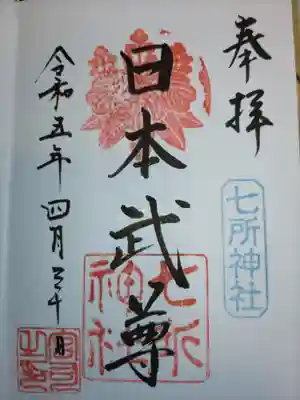 奉拝
七所神社
日本武尊
七所神社
令和五年四月三十日
宮司之印